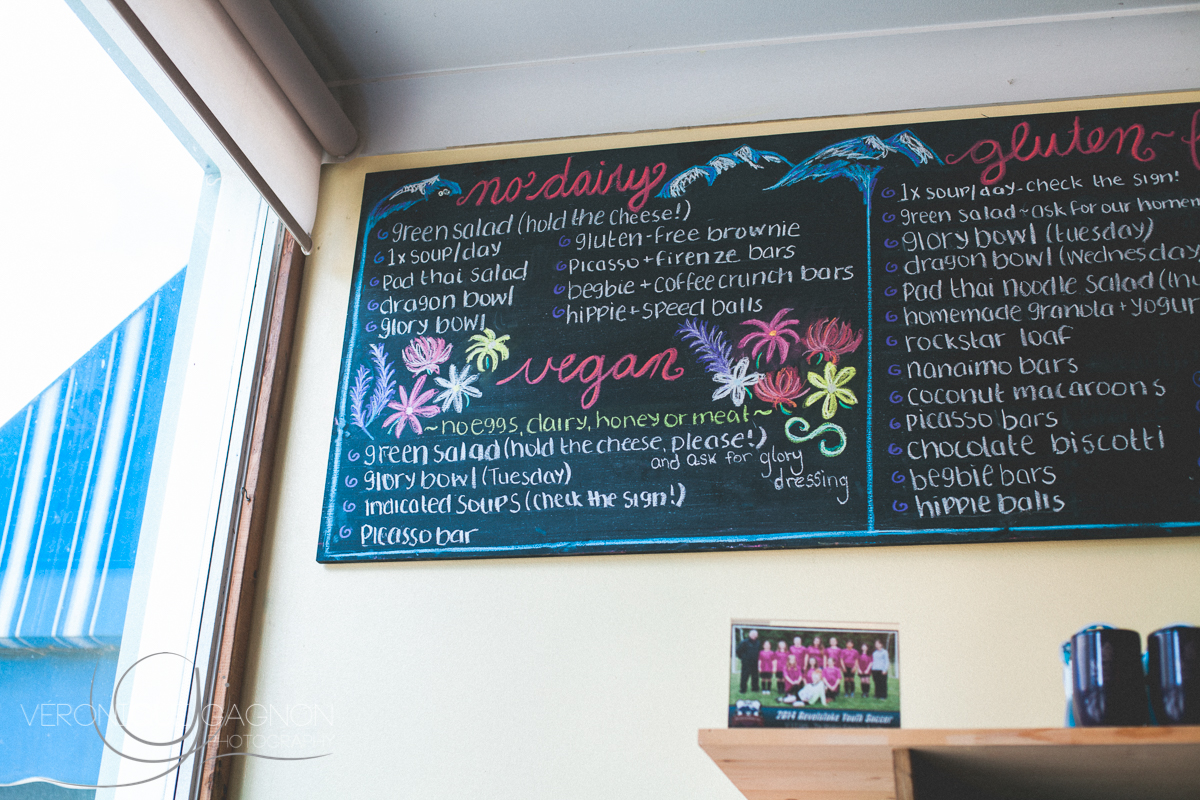 no dairy
green salad (hold the cheese!)
1x soup/day
Pad thai salad
dragon bowl
glory bowl
gluten-free brownie
Picasso + firenze bars
begbie + coffee crunch bars
hippie + speed balls
vegan
~no eggs, dairy, honey or meat~
green salad (hold the cheese, please!)
and ask for glory
dressing
glory bowl (Tuesday)
indicated soups (check the sign!)
Picasso bar
gluten~
1x soup/day-check the sign!
green salad~ask for our homem
glory bowl (tuesday)
dragon bowl (wednesday
pad thai noodle salad (thu
homemade granola + yogur
rockstar loaf
nanaimo bars
coconut macaroons
picasso bars
chocolate biscotti
begbie bars
hippie balls
2014 Revelstoke Youth Soccer
GAGNON
PHOTOGRAPHY